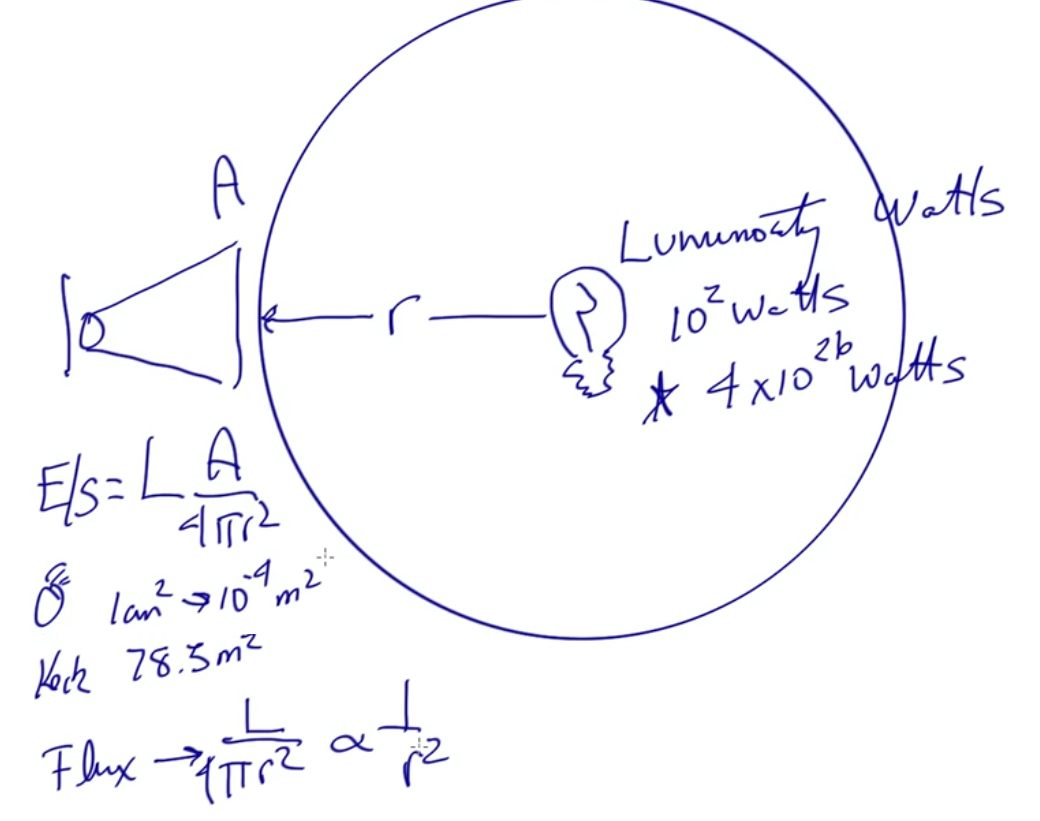 A
Luminosity watts
r
10² watts
4 x 10²⁶ watts
E/s = L A/4πr²
1cm² → 10⁻⁴ m²
Keck 78.5 m²
Flux → L/4πr² ∝ 1/r²